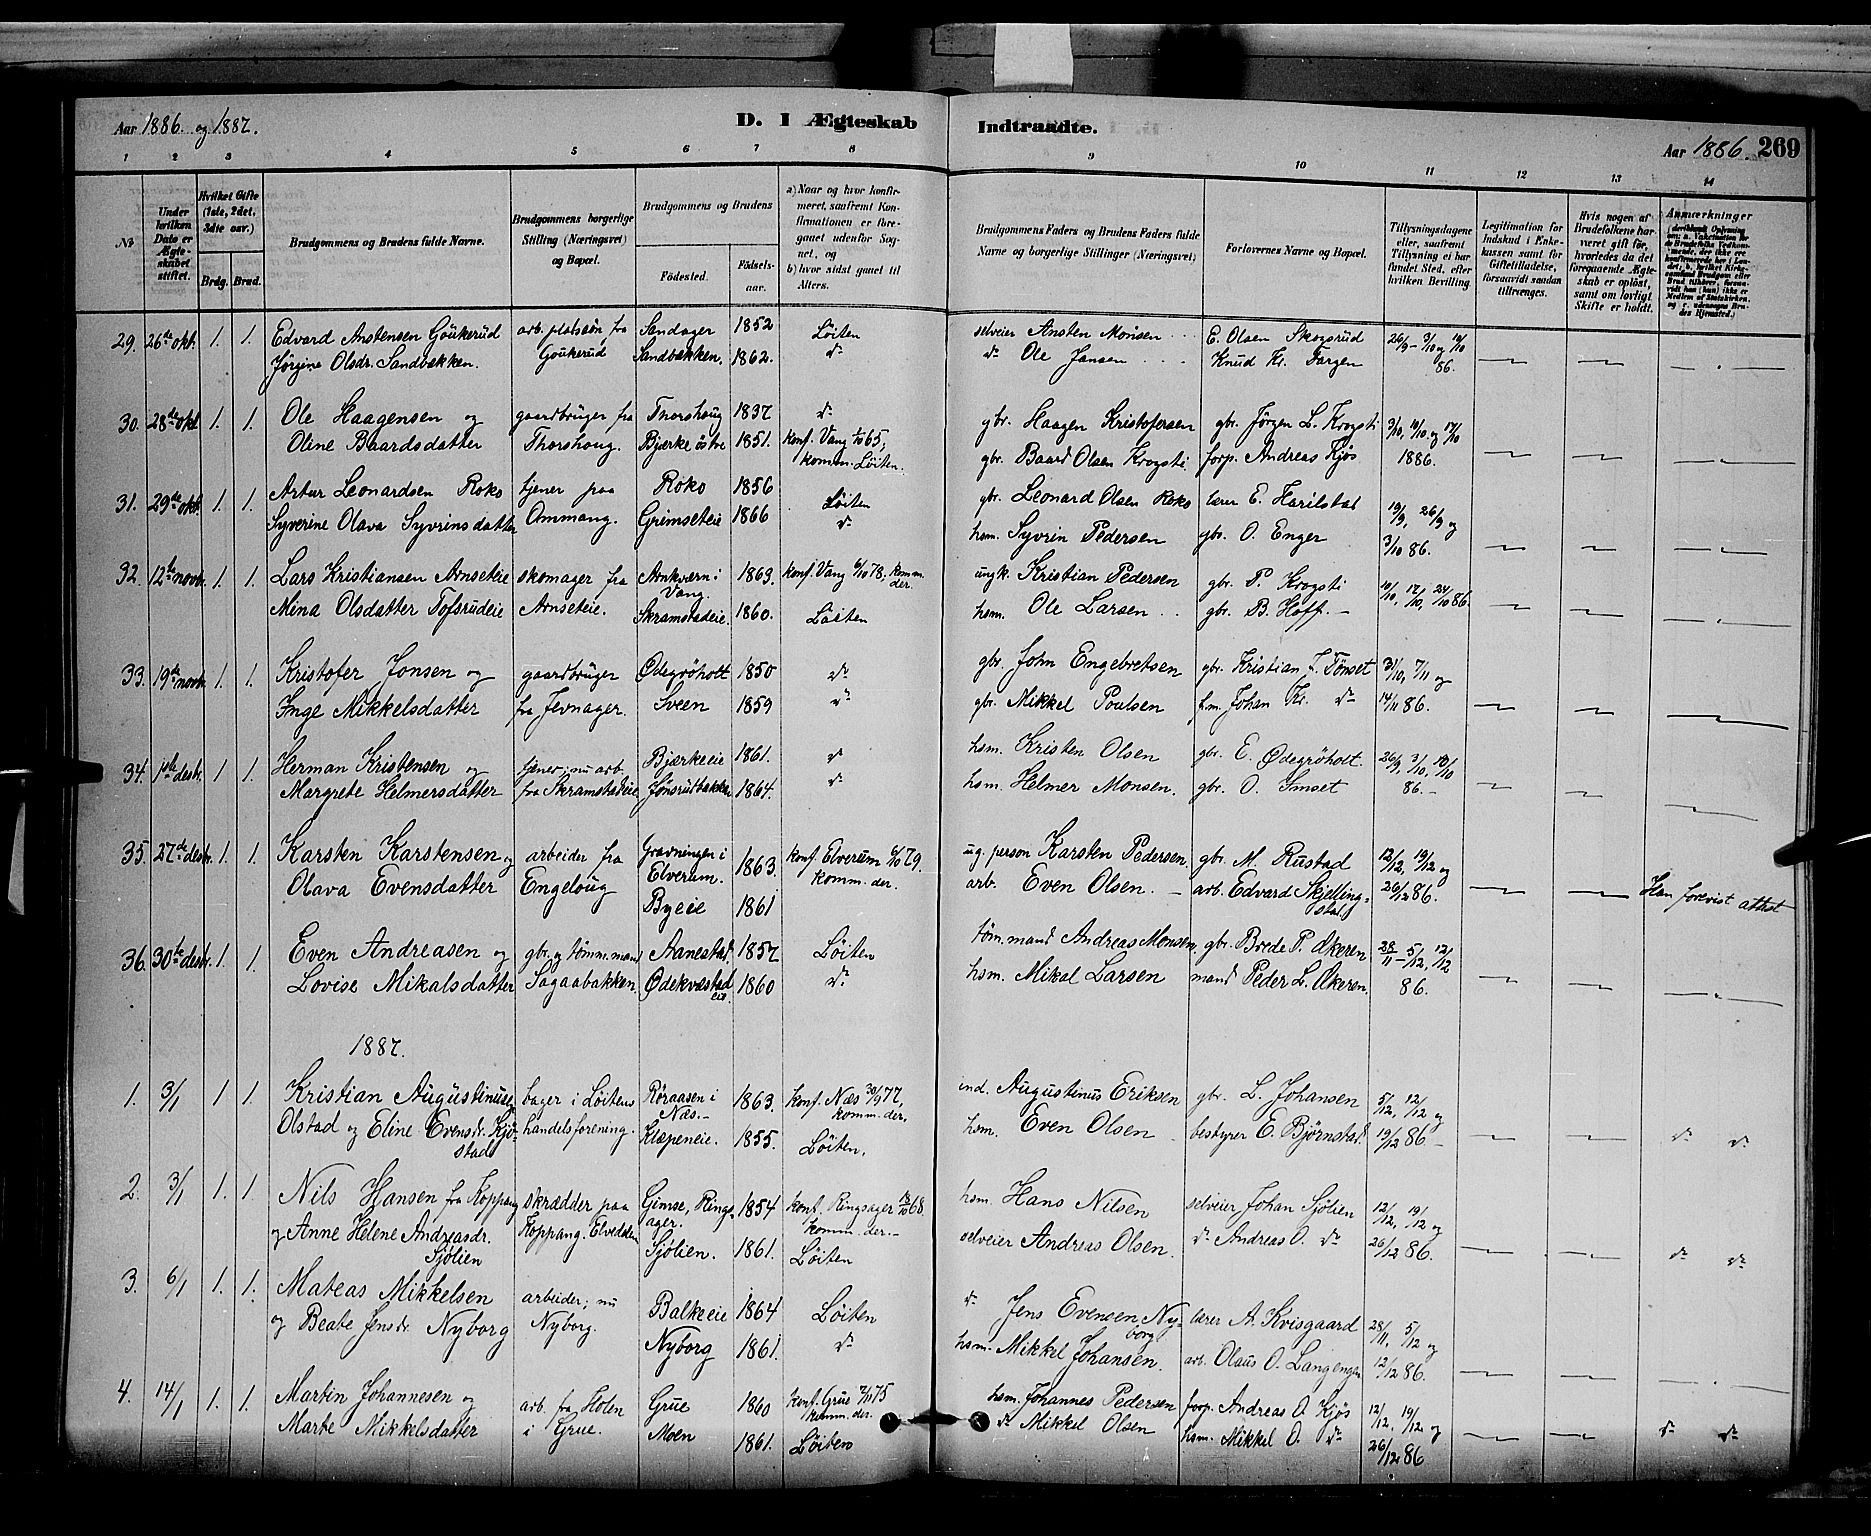 Aar 1886. og 1887.
D. I Ægteskab Indtraadte.
Aar 1886. 269
1 2 3 4 5 6 7 8 9 10 11 12 13 14
No
Under hvilken Dato er Ægteskabet stiftet.
Hvilket Gifte (1ste, 2det, 3die osv.)
Brdg. Brud.
Brudgommens og Brudens fulde Navne.
Brudgommens borgerlige Stilling (Næringsvei) og Bopæl.
Brudgommens og Brudens
Fødested.
Fødselsaar.
a) Naar og hvor konfirmeret, saafremt Konfirmationen er foregaaet udenfor Sognet, og
b) hvor sidst gaaet til Alters.
Brudgommens Faders og Brudens Faders fulde Navne og borgerlige Stillinger (Næringsvei)
Forlovernes Navne og Bopæl.
Tillysningsdagene eller, saafremt Tillysning ei har fundet Sted, efter hvilken Bevilling.
Legitimation for Indskud i Enkekassen samt for Giftetilladelse, forsaavidt saadan tiltrænges.
Hvis nogen af Brudefolkene har været gift før, hvorledes da det foregaaende Ægteskab er opløst, samt om lovligt Skifte er holdt.
Anmærkninger
29. 26de okt. 1. 1. Edvard Anstensen Goukerud arb. platssøn fra Sandager 1852 Løiten selveier Ansten Monsen E. Olsen Skogsrud 26/9 - 3/10 og 10/10
Jørgine Olsdr. Sandbakken. Goukerud Sandbakken. 1862. do do Ole Jansen Knud Kr. Fargen 86.
30. 28de okt. 1. 1. Ole Haagensen og gaardbruger fra Thorshoug 1837 do gbr. Haagen Kristofersen gbr. Jørgen L. Krogsti 3/10, 10/10 og 17/10
Oline Baardsdatter Thorshoug. Bjerke östre 1851. konf. Vang 1/10 65, komm. Løiten. gbr. Baard Olsen Krogsti forp. Andreas Kjøs 1886.
31. 29de okt. 1. 1. Artur Leonardsen Roko tjener paa Roko 1856 Løiten gbr. Leonard Olsen Roko lærer E. Harilstad 19/9, 26/9 og
Syverine Olava Syvrinsdatter Ommang. Grimseteie 1866 do hsm. Syvrin Pedersen gbr. O. Enger 3/10 86.
32. 12te novbr. 1. 1. Lars Kristiansen Arnseteie skomager fra Arnkværn i Vang. 1863. konf. Vang 6/10 78. komm. der. ungk. Kristian Pedersen gbr. P. Krogsti 10/10, 17/10, 24/10 86.
Mina Olsdatter Tofsrudeie Arnseteie. Skramstadeie. 1860. Løiten hsm. Ole Larsen gbr. B. Hoff.
33. 19de novbr. 1. 1. Kristofer Jonsen og gaardbruger Ødegröholt 1850 do gbr. John Engebretsen gbr. Kristian J. Tønset 31/10, 7/11 og
Inge Mikkelsdatter fra Jevnager. Sveen 1859 do gbr. Mikkel Poulsen f.m. Johan Kr. do 14/11 86.
34. 1ste desbr. 1 1. Herman Kristensen og tjener; nu arb. Bjærkeeie 1861. do hsm. Kristen Olsen gbr. E. Ødegröholt. 26/9, 3/10, 10/10
Margrete Helmersdatter fra Skramstadeie Jønsrudbakken 1864. do hsm. Helmer Monsen. gbr. O. Imset 86.
35. 27de desbr. 1. 1. Karsten Karstensen og arbeider fra Gravningen i Elverum. 1863. konf. Elverum 5/10 79. komm. der. ug. person Karsten Pedersen gbr. M. Rustad 12/12, 19/12 og
Olava Evensdatter Engeloug Byeie 1861 arb. Even Olsen. arb. Edvard Skjellingstad 26/12 86. Han forevist attest
36. 30te desbr. 1. 1. Even Andreasen og gbr. og tömm.mand Aanestad. 1857. Løiten töm.mand Andreas Monsen gbr. Brede P. Økeren 28/11 - 5/12, 12/12
Lovise Mikalsdatter Sagaabakken. Ødekvæstad eie. 1860 do hsm. Mikal Larsen mand Peder L. Økeren. 86.
1887.
1. 3/1 1 1. Kristian Augustinusen bager i Løitens Røraasen i Næs. 1863. konf. Næs 30/9 77, komm. der. ind. Augustinus Eriksen gbr. L. Johansen 5/12, 12/12 og
Olstad og Eline Evensdr. Kjöstad handelsforening. Klæpeneie. 1855. Løiten. hsm. Even Olsen bestyrer E. Bjørnstad. 19/12 86 do do
2. 3/1 1. 1. Nils Hansen fra Koppang skrædder paa Gimse, Ringsager. 1854 konf. Ringsager 18/10 68 komm. der. hsm. Hans Nilsen selveier Johan Sjølien 12/12, 19/12 og
og Anne Helene Andreasdr. Sjölien Koppang. Elvedalen Sjölien. 1861. Løiten selveier Andreas Olsen. do Andreas O. do 26/12 86. do do
3. 6/1 1. 1. Mateas Mikkelsen arbeider; nu Balkeeie 1864 Løiten do Jens Evensen Nyborg lærer A. Kvisgaard 28/11, 5/12 og
og Beate Jensdr. Nyborg Nyborg. Nyborg 1861. do hsm. Mikkel Johansen. arb. Olaus O. Langengen 12/12 86.
4. 14/1 1. 1. Martin Johannesen og arb. fra Holen Grue 1860 konf. Grue 75 komm. der. hsm. Johannes Pedersen forp. Andreas O. Kjøs 12/12, 19/12 og
Marte Mikkelsdatter i Grue. Moen 1861. Løiten do Mikkel Olsen hsm. Mikkel O. do 26/12 86 do do